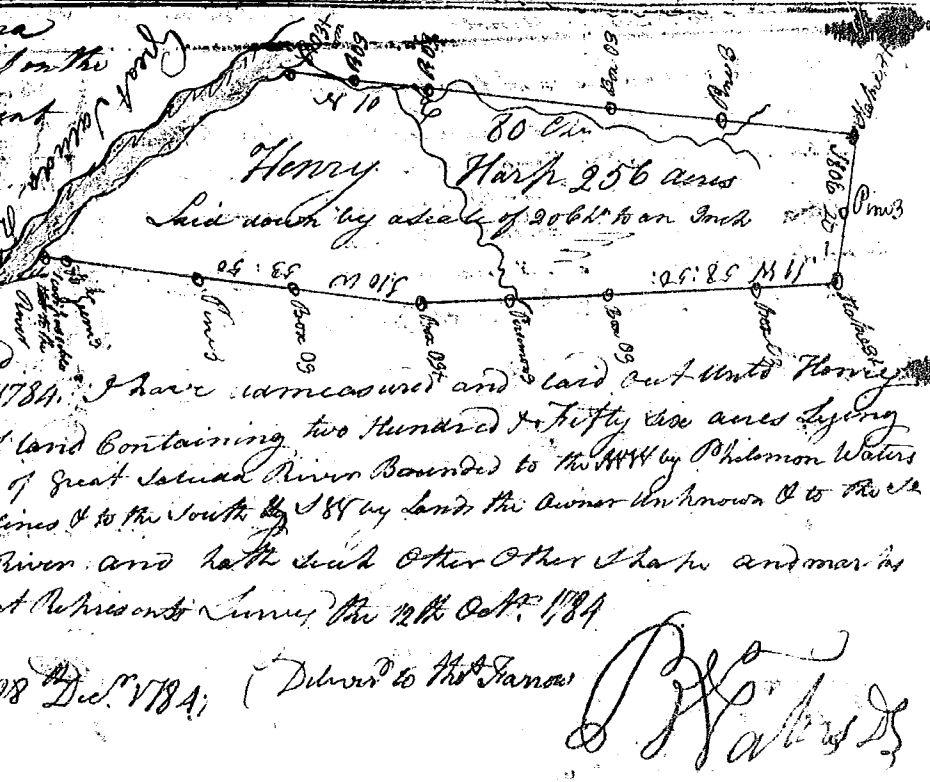 on the
Great Saluda
BO3
BO3
Box 03
Pine3
N 10
80 Chn
Henry Harp 256 acres
Laid down by a scale of 20 Chs to an Inch
Pine3
S10 W 53:50
11 W 58:50
River
Pine3
Box 03
Box 03
Box 03
1784. I have admeasured and laid out unto Henry
land Containing two Hundred & Fifty six acres Lying
of Great Saluda River Bounded to the by Philemon Waters
Lines & to the South by Lands the Owner Unknown & to the SE
River and hath such Other Other Shape and marks
Represents Survey the 12th Octr. 1784
28th Decr. 1784; (Deliver'd to Thos Farrow
P Waters DS